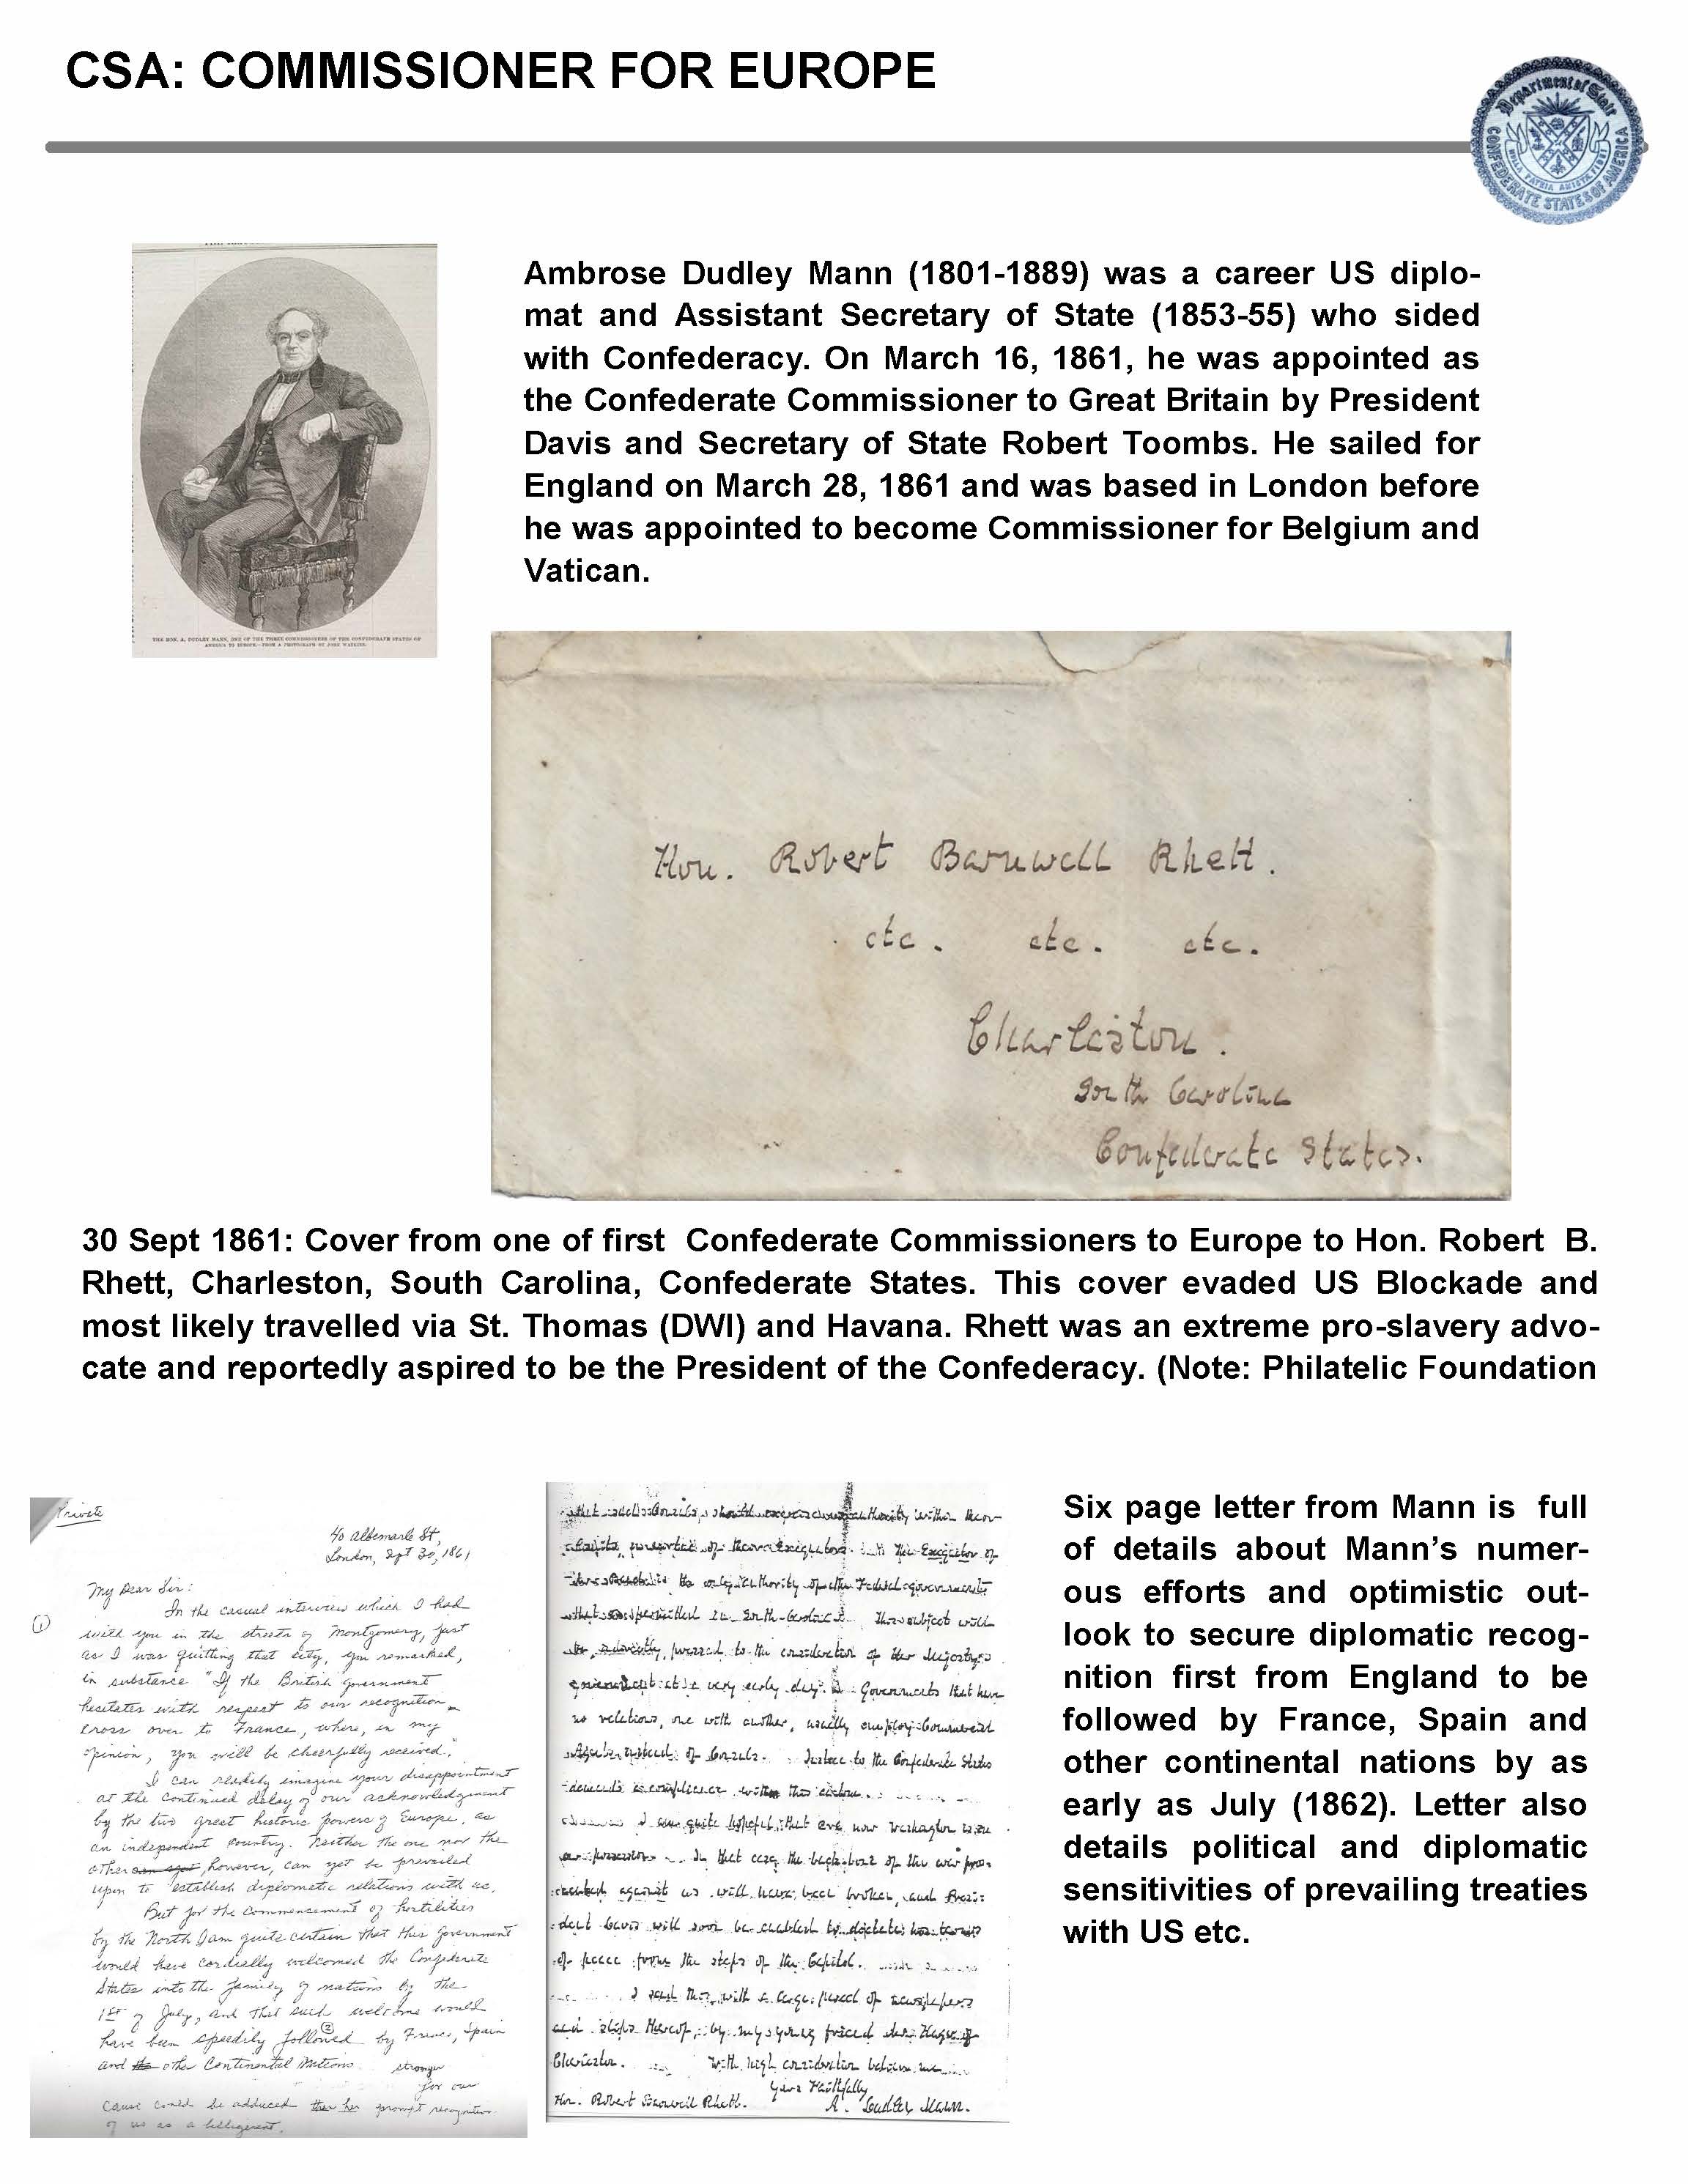 CSA: COMMISSIONER FOR EUROPE
Department of State
CONFEDERATE STATES OF AMERICA
Ambrose Dudley Mann (1801-1889) was a career US diplo-
mat and Assistant Secretary of State (1853-55) who sided
with Confederacy. On March 16, 1861, he was appointed as
the Confederate Commissioner to Great Britain by President
Davis and Secretary of State Robert Toombs. He sailed for
England on March 28, 1861 and was based in London before
he was appointed to become Commissioner for Belgium and
Vatican.
THE HON. A. DUDLEY MANN, ONE OF THE THREE COMMISSIONERS OF THE CONFEDERATE STATES OF
AMERICA TO EUROPE.—FROM A PHOTOGRAPH BY JOHN WATKINS.
Hon. Robert Barnwell Rhett.
etc. etc. etc.
Charleston.
South Carolina
Confederate States.
30 Sept 1861: Cover from one of first Confederate Commissioners to Europe to Hon. Robert B.
Rhett, Charleston, South Carolina, Confederate States. This cover evaded US Blockade and
most likely travelled via St. Thomas (DWI) and Havana. Rhett was an extreme pro-slavery advo-
cate and reportedly aspired to be the President of the Confederacy. (Note: Philatelic Foundation
Private
40 Albemarle St,
London, Sept 30, 1861
My Dear Sir:
In the casual interview which I had
1
with you in the streets of Montgomery, just
as I was quitting that city, you remarked,
in substance "If the British Government
hesitates with respect to our recognition
cross over to France, where, in my
opinion, you will be cheerfully received."
I can readily imagine your disappointment
at the continued delay of our acknowledgment
by the two great historic powers of Europe, as
an independent country. Neither the one nor the
other, however, can yet be prevailed
upon to establish diplomatic relations with us.
But for the commencement of hostilities
by the North I am quite certain that this Government
would have cordially welcomed the Confederate
States into the family of nations by the
1st of July, and that such welcome would
2
have been speedily followed by France, Spain
and other Continental Nations. stronger
for our
cause could be adduced than her prompt recognition
of us as a belligerent.
that such Consuls, should exercise authority within
of the Exequator of
the only authority of the Federal government
that is permitted in South Carolina. This subject will
be, pressed to the consideration of Her Majesty's
government at a very early day. Governments that have
no relations, one with another, usually employ Commercial
Agents instead of Consuls. Justice to the Confederate States
demands a compliance with this custom.
I am quite hopeful that ere now Washington is in
our possession. In that case the backbone of the war pros-
ecuted against us will have been broken, and Presi-
dent Davis will soon be enabled to dictate his terms
of peace from the steps of the Capitol.
I send this, with a large parcel of newspapers
and slips thereof, by my young friend
Charleston. With high consideration believe me
Yours Faithfully
Hon. Robert Barnwell Rhett. A. Dudley Mann.
Six page letter from Mann is full
of details about Mann's numer-
ous efforts and optimistic out-
look to secure diplomatic recog-
nition first from England to be
followed by France, Spain and
other continental nations by as
early as July (1862). Letter also
details political and diplomatic
sensitivities of prevailing treaties
with US etc.